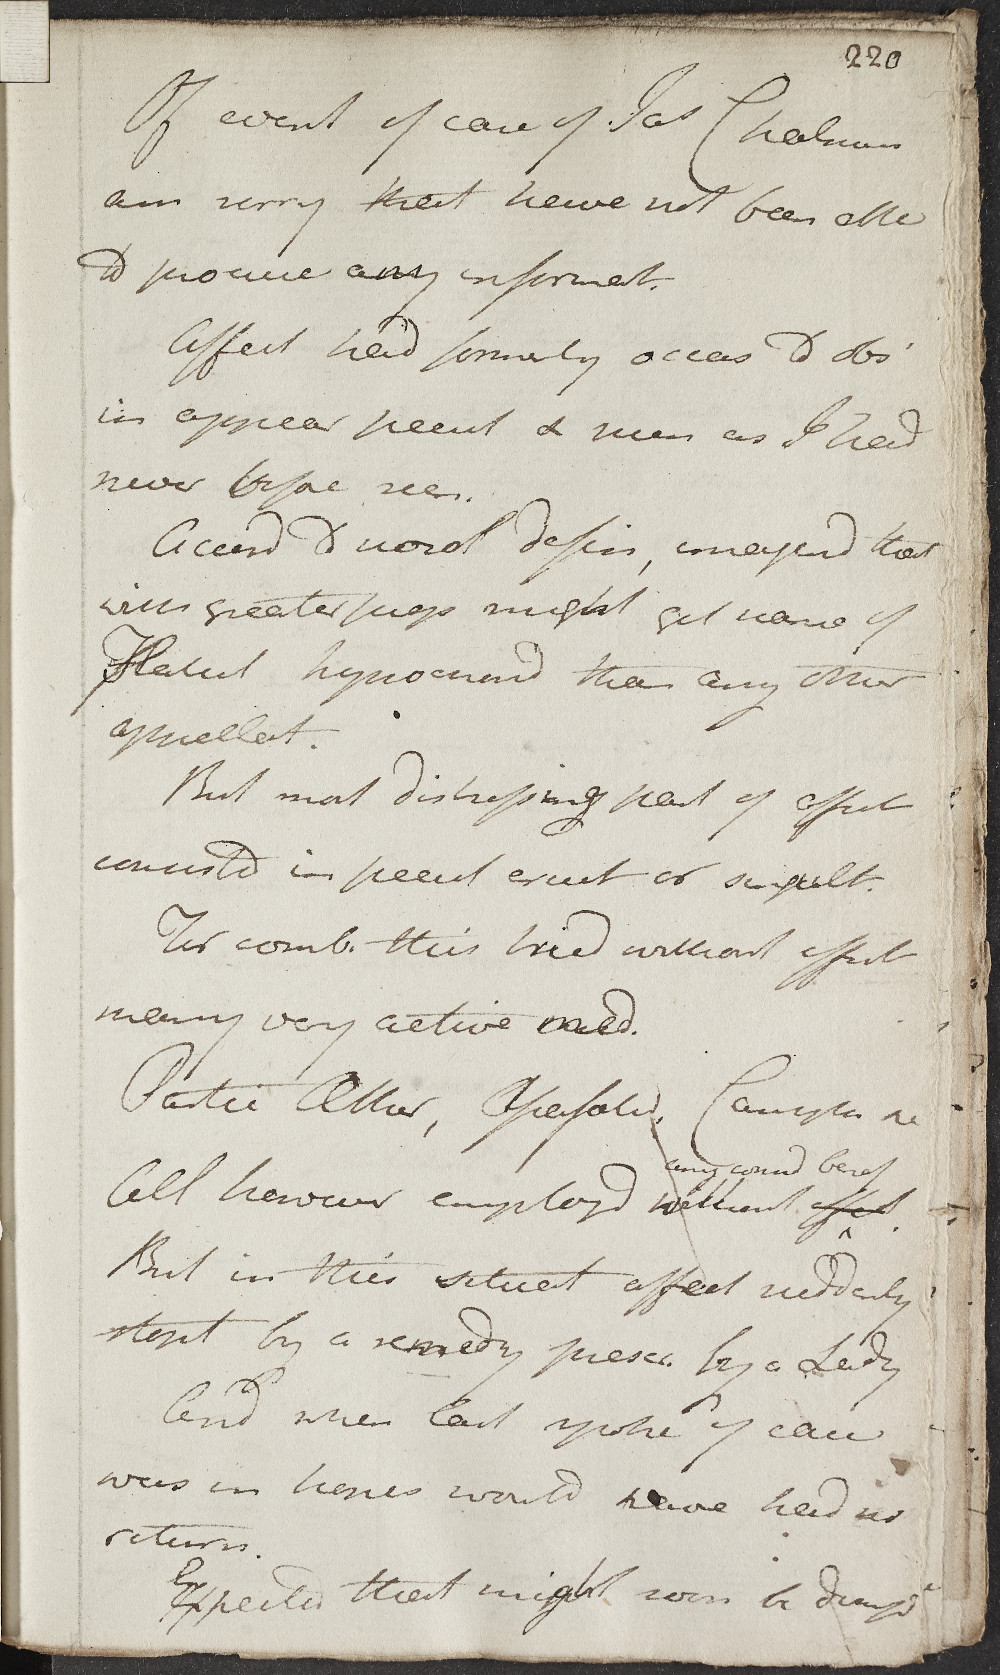 220
Of event of case of Jas Chalmers
am sorry that have not been able
to procure any informat.
Affect had formerly occas to obs
in appear peculi & such as I had
never before seen.
Accord to nosol defin, imagind that
with greater prop might get name of
Flatul hypocond than any other
appellat.
But most distressing part of affect
consistd in peculi eruct or singult.
For comb. this tried without effect
many very active med.
Partic Æther, Asafoetid, Camphr &c
any consid benef
All however employd without effect.
But in this situat affect suddenly
stopt by a remedy prescr. by a Lady
And when last spoke of case
was in hopes would have had no
return.
Expected that might soon be dismisd